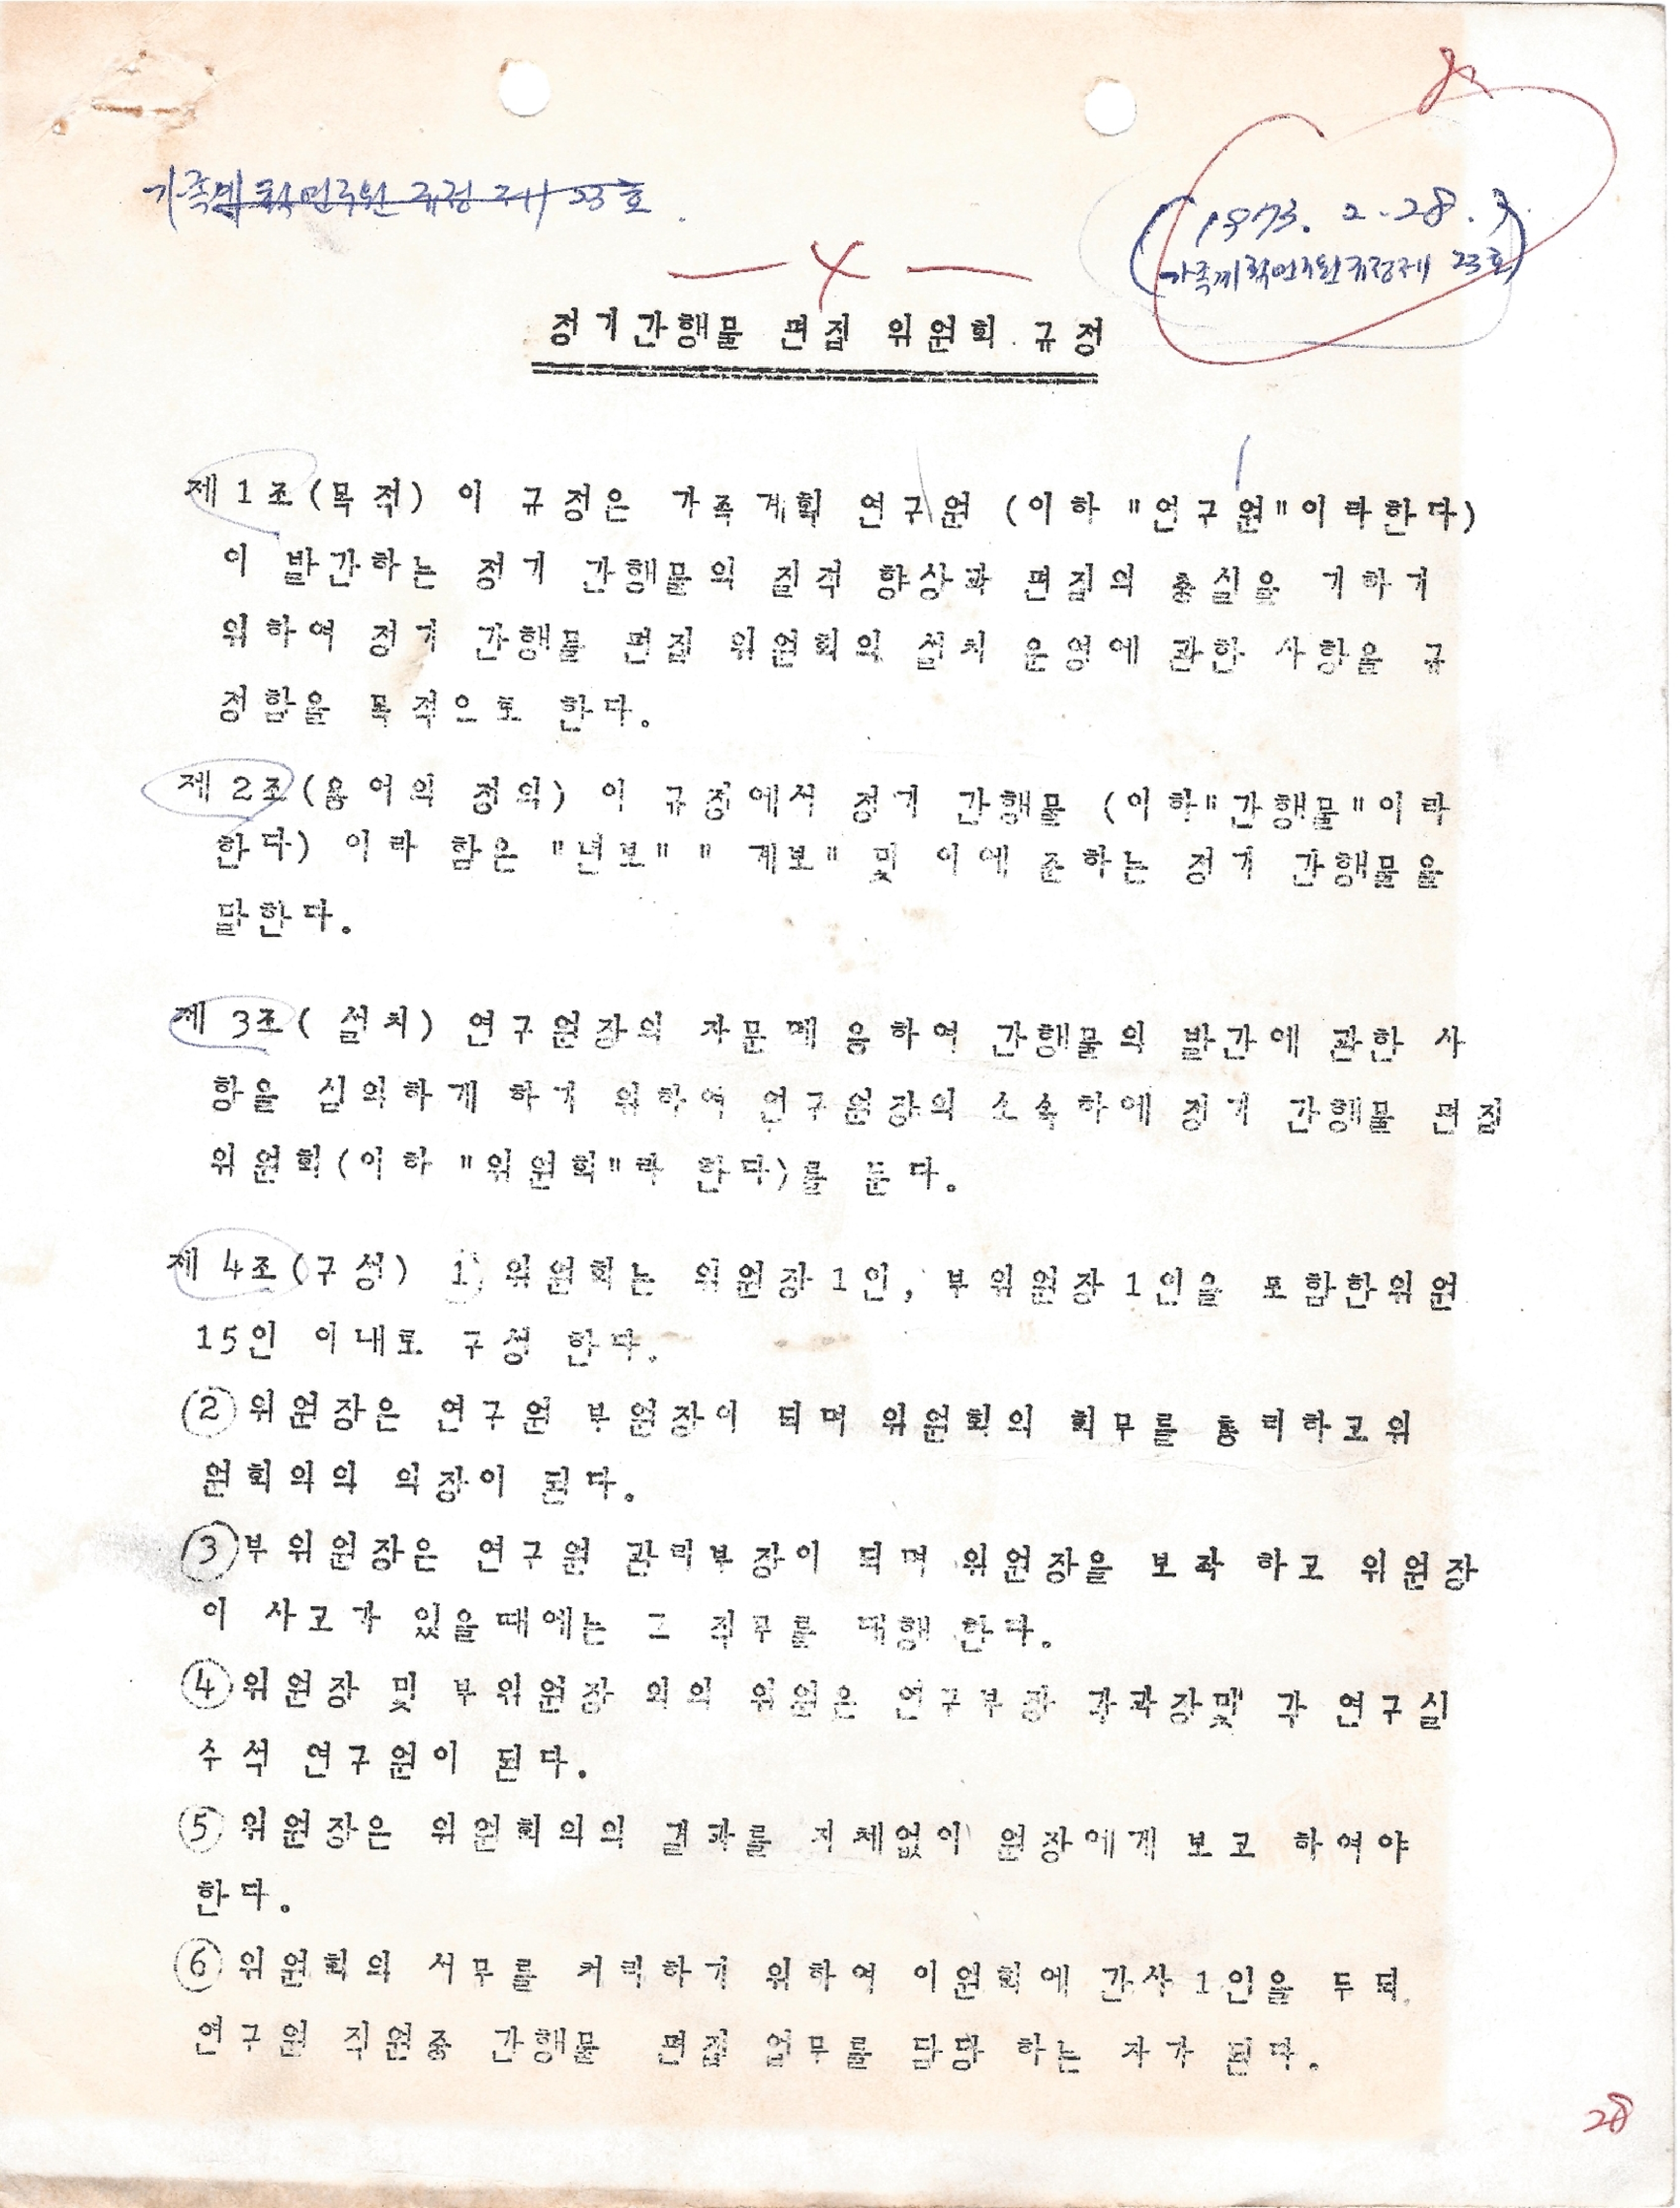 가족계획연구원 규정 제 23호.
(1973. 2. 28.
가족계획연구원규정제 23호)
정기간행물 편집 위원회 규정
제1조(목적) 이 규정은 가족계획 연구원 (이하 "연구원"이라한다)
이 발간하는 정기 간행물의 질적 향상과 편집의 충실을 기하기
위하여 정기 간행물 편집 위원회의 설치 운영에 관한 사항을 규
정함을 목적으로 한다.
제 2조(용어의 정의) 이 규정에서 정기 간행물 (이하"간행물"이라
한다) 이라 함은 "년보" " 계보" 및 이에 준하는 정기 간행물을
말한다.
제 3조( 설치) 연구원장의 자문에 응하여 간행물의 발간에 관한 사
항을 심의하게 하기 위하여 연구원장의 소속하에 정기 간행물 편집
위원회(이하 "위원회"라 한다)를 둔다.
제 4조(구성) 1) 위원회는 위원장1인, 부위원장1인을 포함한위원
15인 이내로 구성 한다.
② 위원장은 연구원 부원장이 되며 위원회의 회무를 통리하고위
원회의의 의장이 된다.
③부위원장은 연구원 관리부장이 되며 위원장을 보좌 하고 위원장
이 사고가 있을때에는 그 직무를 대행 한다.
④위원장 및 부위원장 외의 위원은 연구부장 각과장및 각 연구실
수석 연구원이 된다.
⑤ 위원장은 위원회의의 결과를 지체없이 원장에게 보고 하여야
한다.
⑥ 위원회의 서무를 처리하기 위하여 이원회에 간사1인을 두되.
연구원 직원중 간행물 편집 업무를 담당 하는 자가 된다.
28